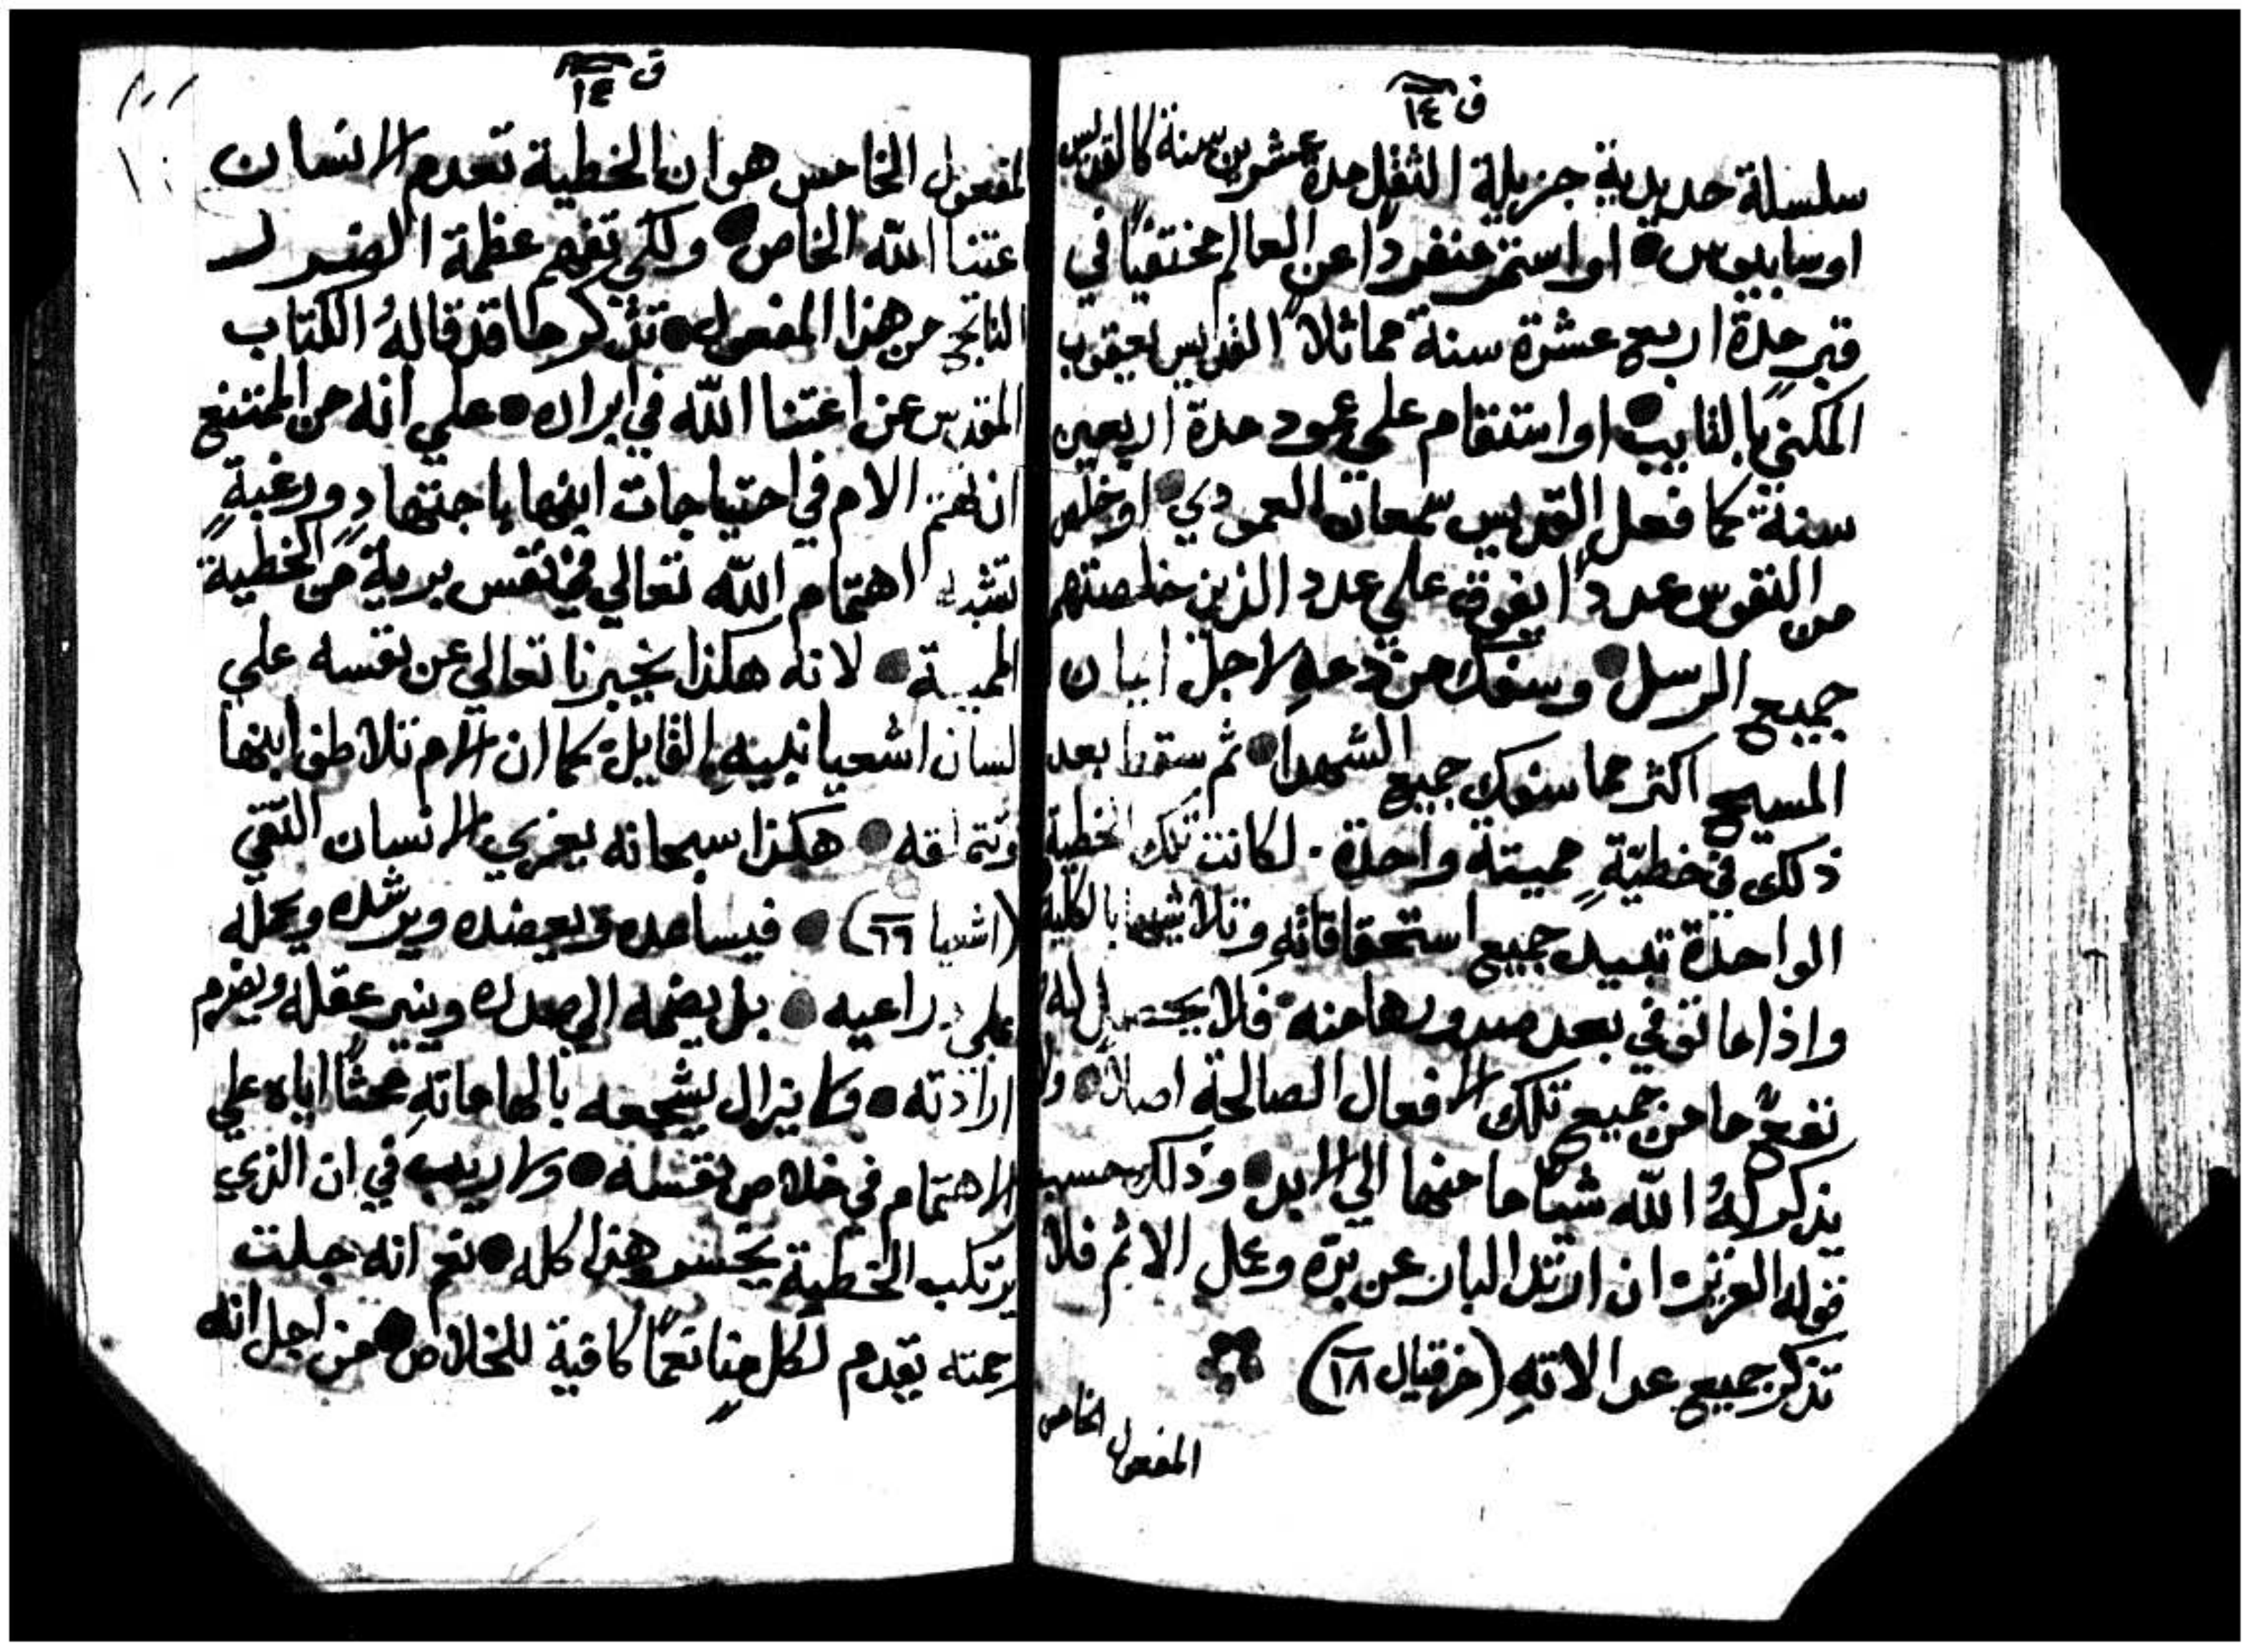 ق ١٤
سلسلة حديدية جزيلة الثقل مدة عشرين سنة كالقديس
اوسابيوس او استمر منفردًا عن العالم مختفيًا في
قبر مدة اربع عشرة سنة مماثلاً القديس يعقوب
المكني بالتايب او استقام علي عمود مدة اربعين
سنة كما فعل القديس سمعان العمودي او خلص
من النفوس عددًا يفوق علي عدد الذين خلصتهم
جميع الرسل وسفك من دمهِ لاجل ايمان
المسيح اكثر مما سفك جميع الشهدا ثم سقط بعد
ذلك في خطيّةٍ مميتة واحدة. لكانت تلك الخطية
الواحدة تبيد جميع استحقاقاتهِ وتلاشيها بالكلية
واذا ما توفي بعد صدورها منه فلا يحصل له
نفعٌ ما من جميع تلك الافعال الصالحة اصلاً ولا
يذكر لهُ الله شيًا ما منها الي الابد وذلك حسب
قوله العزيز ان ارتد البار عن برّه وعمل الاثم فلا
تذكر جميع عدالاتهِ (حزقيال ١٨)
المفعول الخامس
ق ١٤
المفعول الخامس هو ان الخطية تعدم الانسان
اعتنا الله الخاص ولكي تفهم عظمة الضرر
الناتج من هذا المفعول تذكر ما قد قالهُ الكتاب
المقدس عن اعتنا الله في ابراره علي انه من الممتنع
ان تهتم الام في احتياجات ابنها باجتهادٍ ورغبةٍ
تشبه اهتمام الله تعالي في نفس بريةٍ من الخطية
المميتة لانه هكذا يخبرنا تعالي عن نفسه علي
لسان اشعيا نبيهِ القايل كما ان الام تلاطف ابنها
وتتملقه هكذا سبحانه يعزي الانسان التقي
(اشعيا ٦٦) فيساعده ويعضده ويرشده ويحمله
علي دراعيه بل يضمه الي صدره وينير عقله ويضرم
ارادته ولا يزال يشجعه بالهاماتهِ محثًا اياه علي
الاهتمام في خلاص نفسه ولا ريب في ان الذي
يرتكب الخطية يخسر هذا كله نعم انه جلت
رحمته يقدم لكلٍ منا نعمًا كافية للخلاص من اجل انه